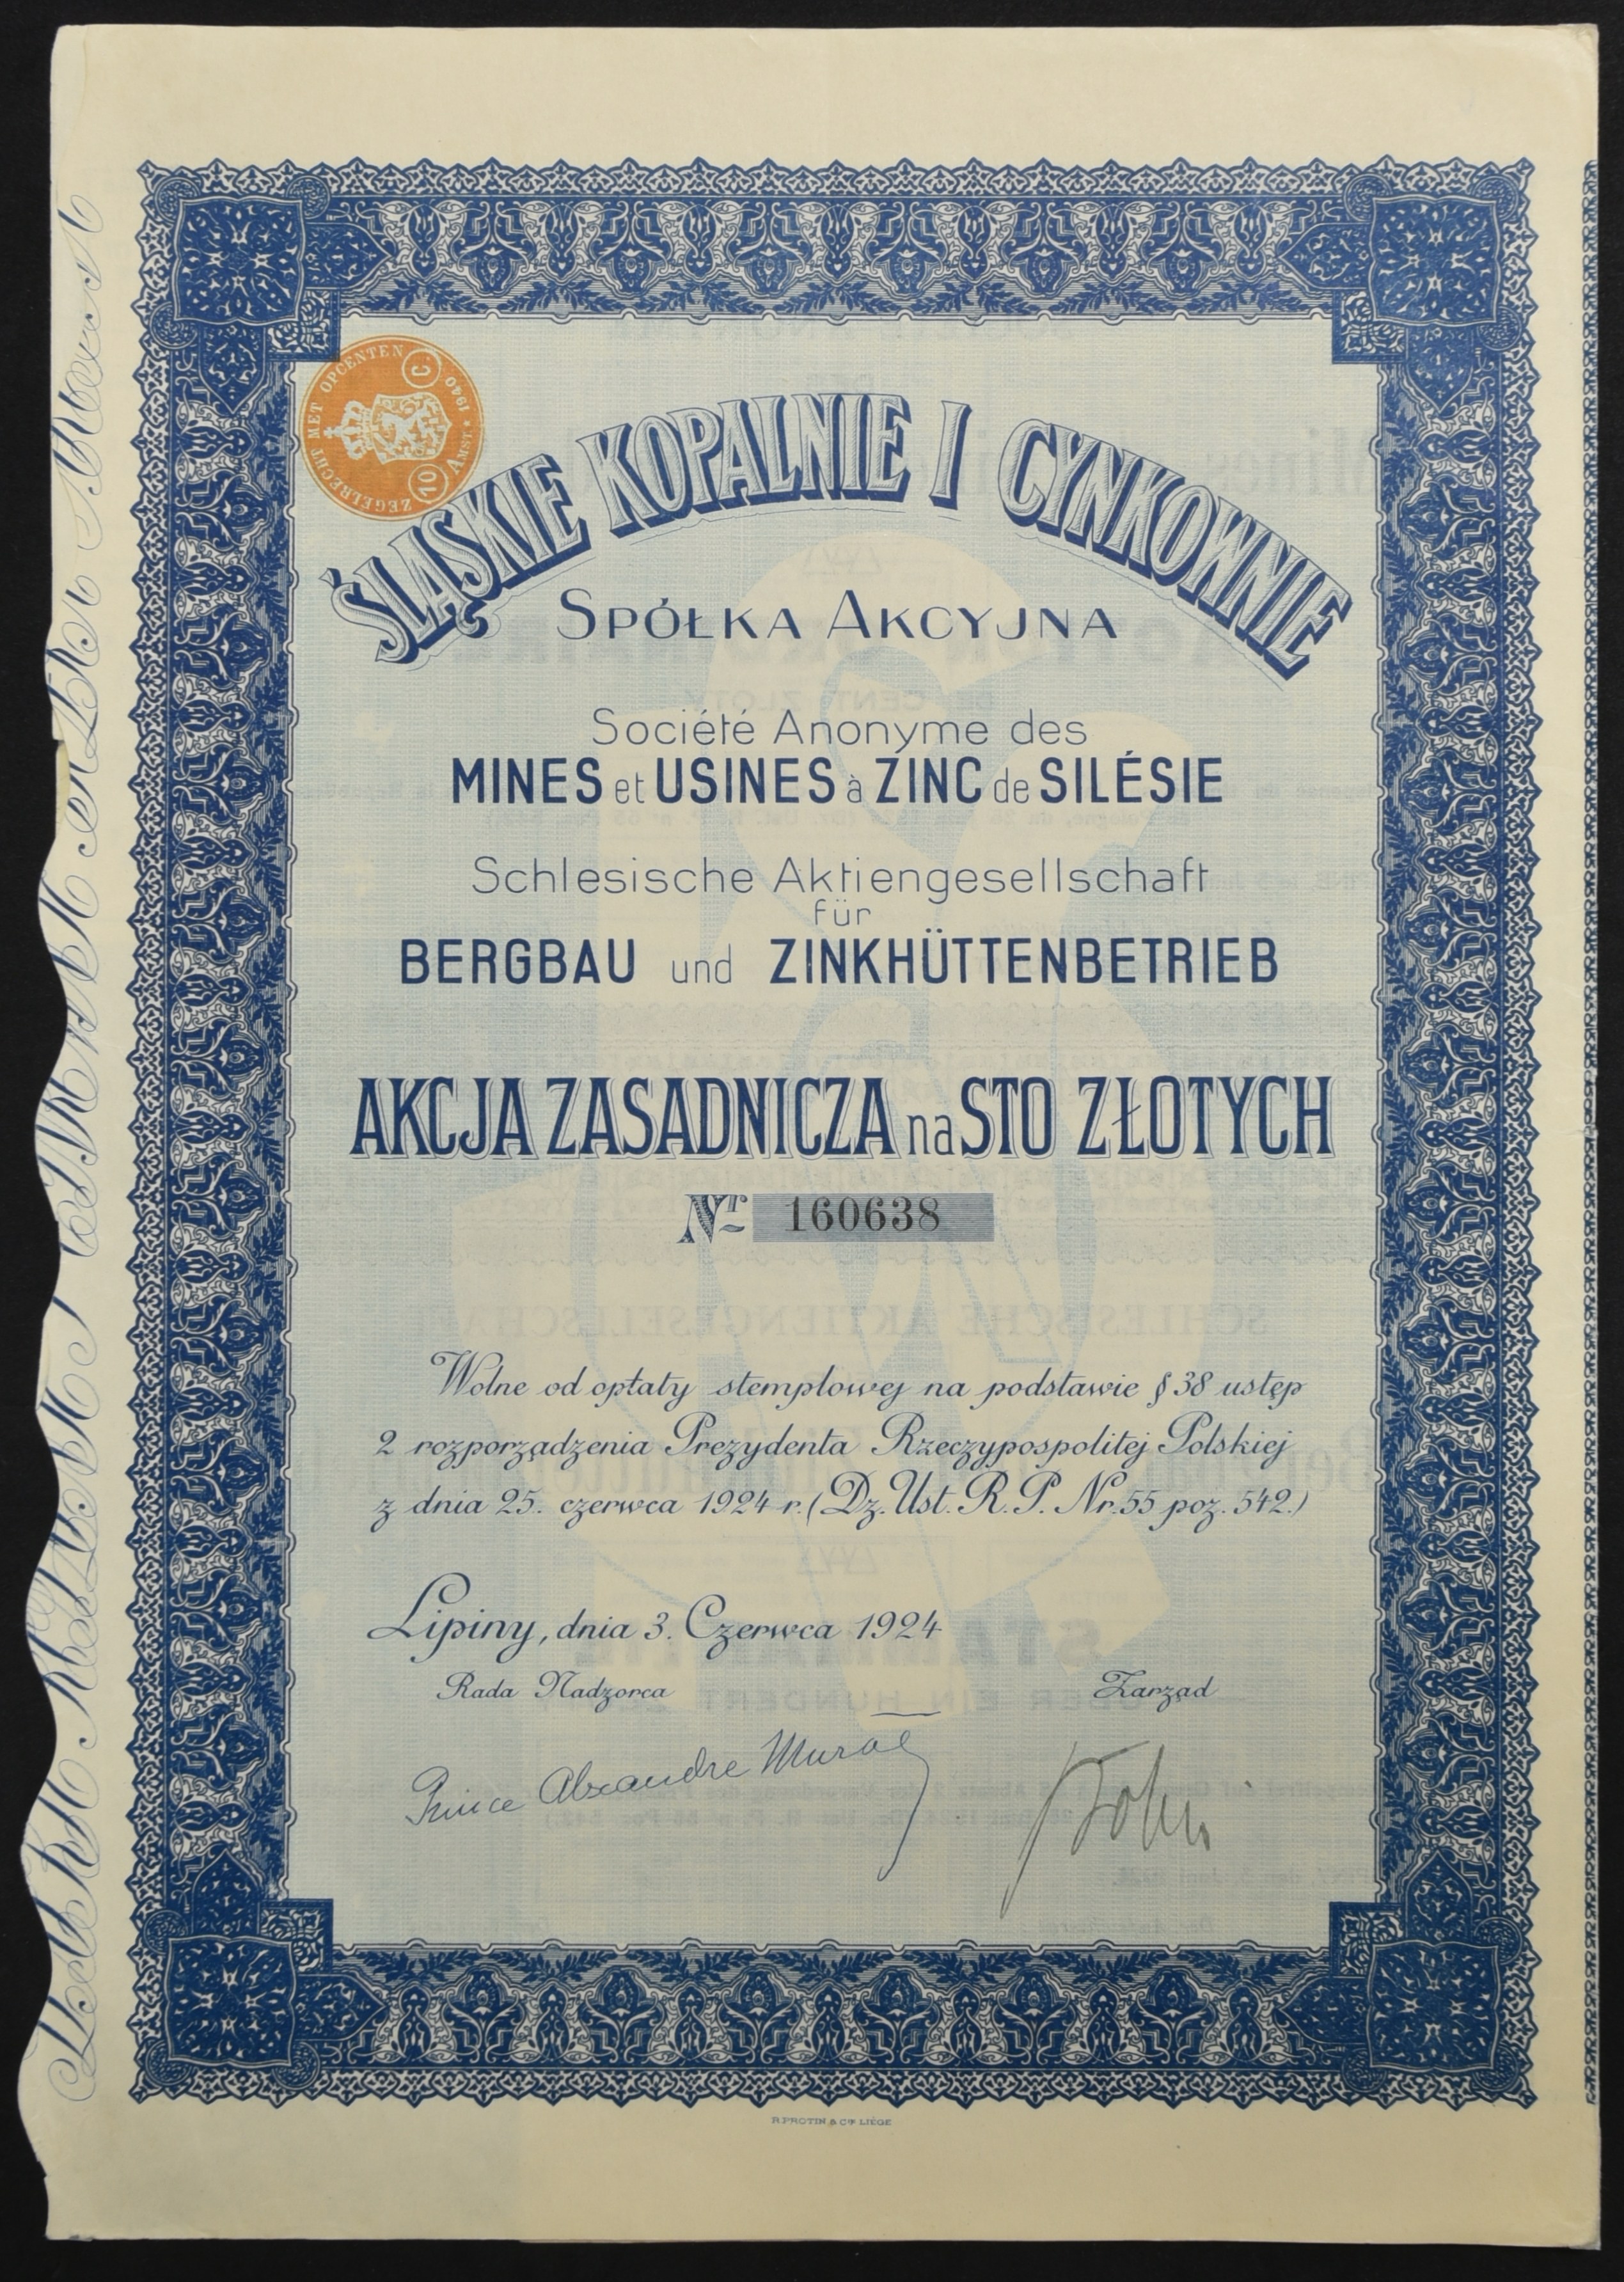 ZEGELRECHT MET OPCENTEN
C.
1940
AMST.
10
ŚLĄSKIE KOPALNIE I CYNKOWNIE
SPÓŁKA AKCYJNA
Société Anonyme des
MINES et USINES à ZINC de SILÉSIE
Schlesische Aktiengesellschaft
für
BERGBAU und ZINKHÜTTENBETRIEB
AKCJA ZASADNICZA na STO ZŁOTYCH
Nr 160638
Wolne od opłaty stemplowej na podstawie § 38 ustęp
2 rozporządzenia Prezydenta Rzeczypospolitej Polskiej
z dnia 25. czerwca 1924 r. (Dz. Ust. R. P. Nr. 55 poz. 542.)
Lipiny, dnia 3. Czerwca 1924
Rada Nadzorca Zarząd
Prince Alexandre Murat
R. PROTIN & Cie LIÈGE